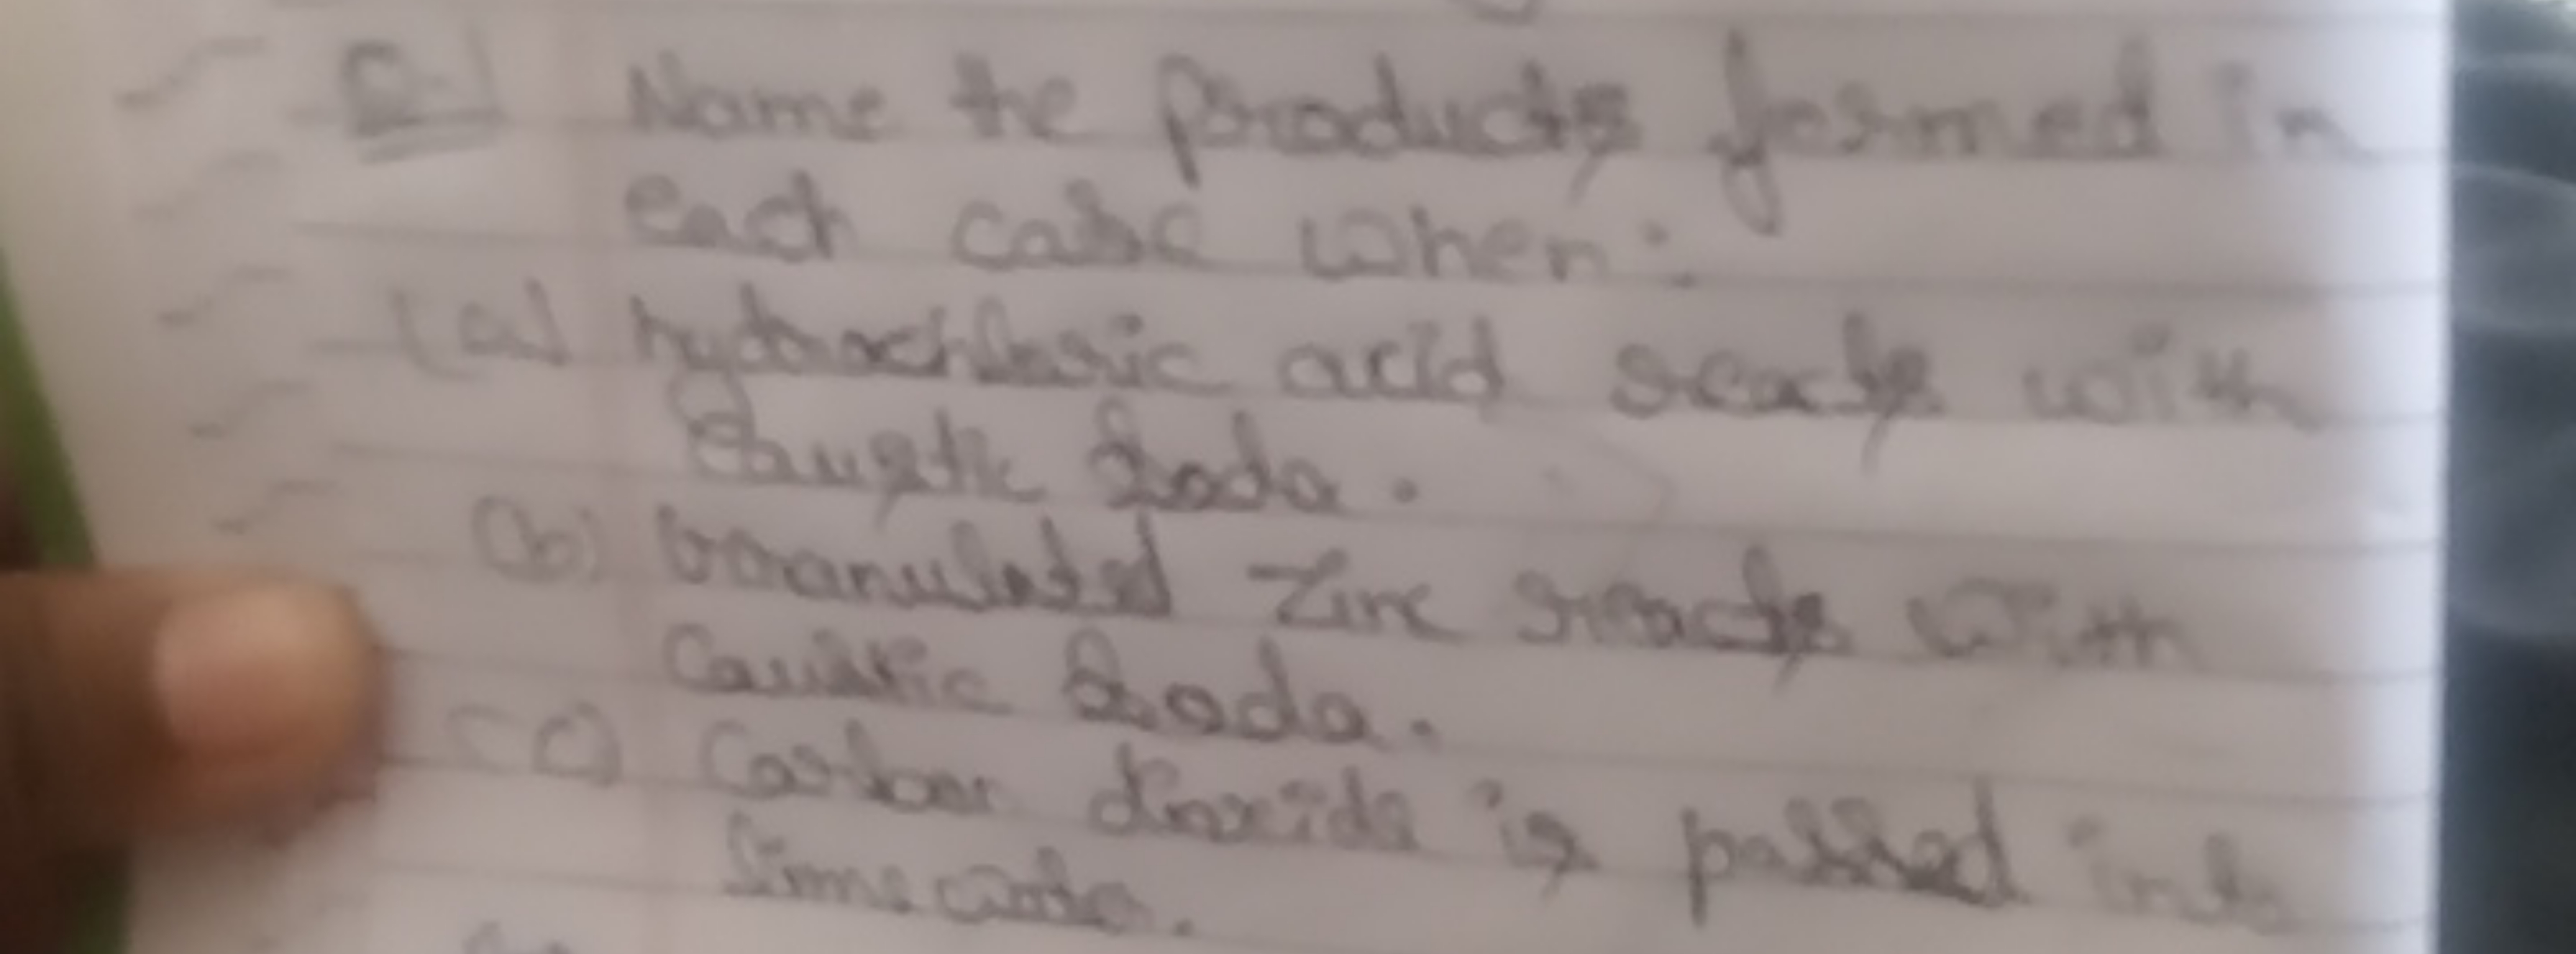 Q-1 Name the products formed in
each case when:-
(a) hydrochloric acid reacts with
Caustic Soda.
(b) Granulated Zinc reacts with
Caustic Soda.
(c) Carbon dioxide is passed into
lime water.